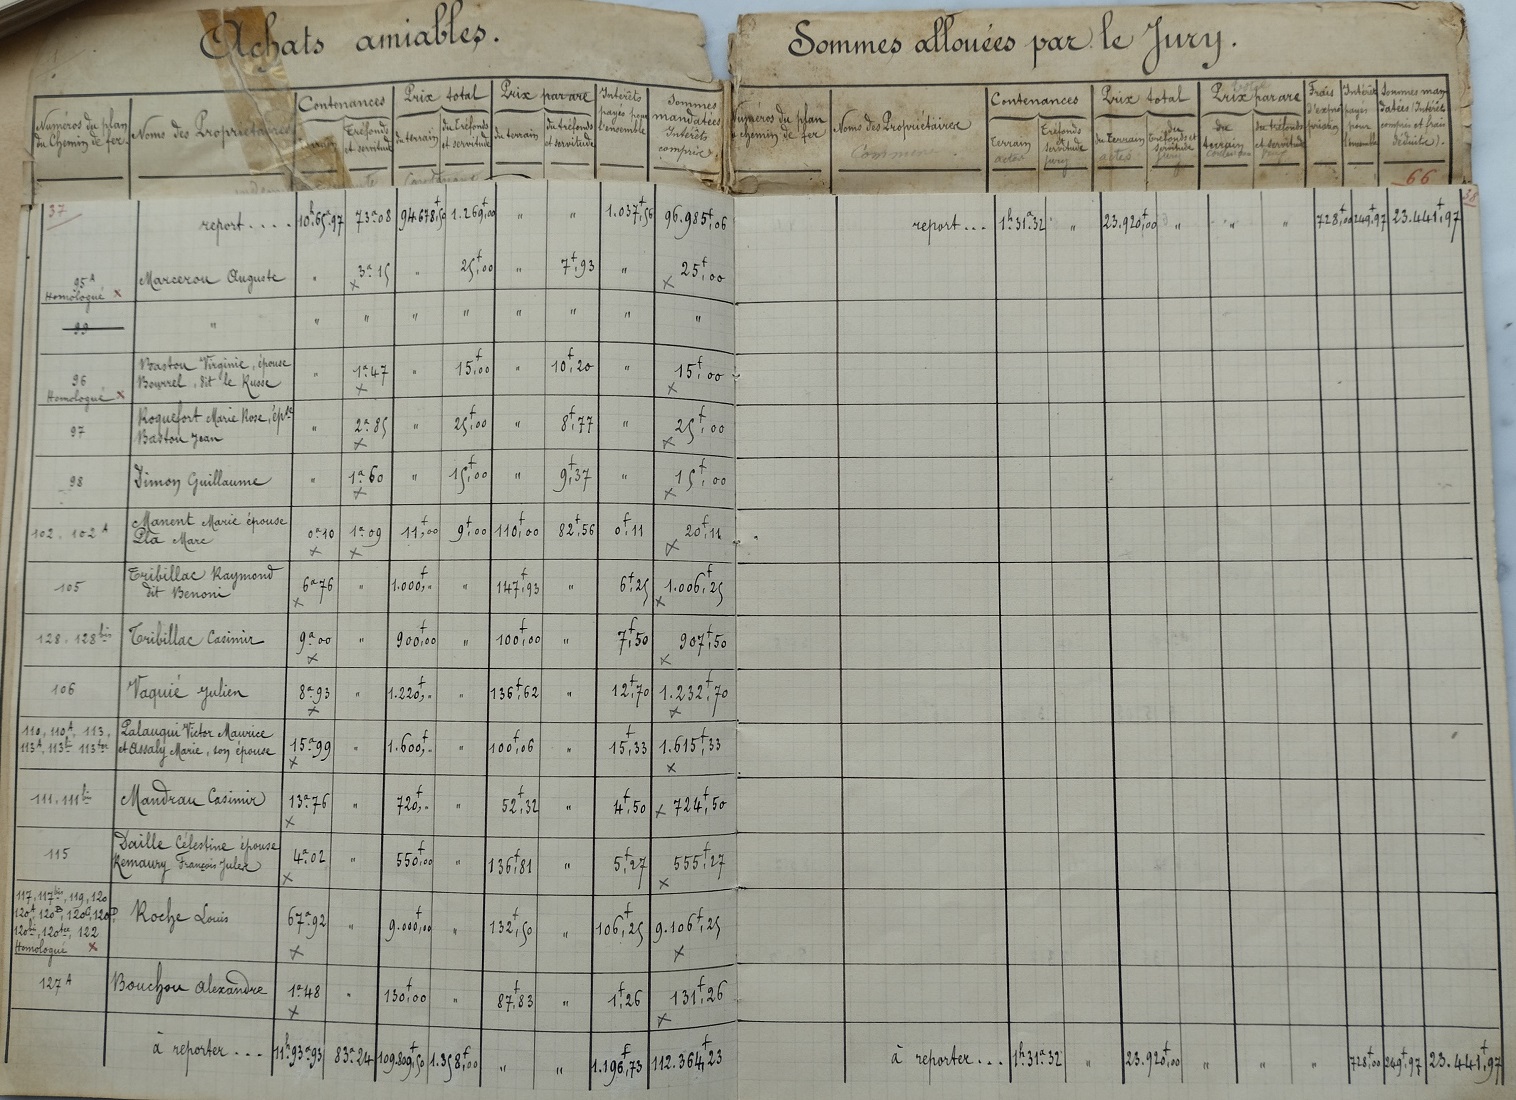 Achats amiables.
Numéros du plan du Chemin de fer. Noms des Propriétaires Contenances Tréfonds et servitude Prix total du terrain du Tréfonds et servitude Prix par are du terrain du tréfonds et servitude Intérêts payés pour l'ensemble Sommes mandatées Intérêts compris
37
report.... 10h65a97 73a08 94.678f,50 1.269f,00 " " 1.037f,56 96.985f,06
95A Homologué x Marcerou Auguste " 3a15 " 25f,00 " 7f,93 " 25f,00
99 " " " " " " " " "
96 Homologué x Baston Virginie, épouse Bourrel, dit le Russe " 1a47 " 15f,00 " 10f,20 " 15f,00
97 Roquefort Marie Rose, épse Baston Jean " 2a85 " 25f,00 " 8f,77 " 25f,00
98 Simon Guillaume " 1a60 " 15f,00 " 9f,37 " 15f,00
102. 102A Manent Marie épouse Pla Marc 0a10 1a09 11f,00 9f,00 110f,00 82f,56 0f,11 20f,11
105 Tribillac Raymond dit Benoni 6a76 " 1.000f,- " 147f,93 " 6f,25 1.006f,25
128. 128bis Tribillac Casimir 9a00 " 900f,00 " 100f,00 " 7f,50 907f,50
106 Vaquié Julien 8a93 " 1.220f,- " 136f,62 " 12f,70 1.232f,70
110, 110A, 113, 113A, 113bis 113ter Palauqui Victor Maurice et Assaly Marie, son épouse 15a99 " 1.600f,- " 100f,06 " 15f,33 1.615f,33
111. 111bis Mandrau Casimir 13a76 " 720f,- " 52f,32 " 4f,50 724f,50
115 Daille Célestine épouse Remaury François Jules 4a02 " 550f,00 " 136f,81 " 5f,27 555f,27
117, 117bis, 119, 120 120A, 120B, 120C, 120D, 120bis, 120ter, 122 Homologué x Roche Louis 67a92 " 9.000f,00 " 132f,50 " 106f,25 9.106f,25
127A Bouchou Alexandre 1a48 " 130f,00 " 87f,83 " 1f,26 131f,26
à reporter... 11h93a93 83a24 109.809f,50 1.358f,00 " " 1.196f,73 112.364f,23
Sommes allouées par le Jury.
Numéros du plan du chemin de fer Noms des Propriétaires Commune. Contenances Terrain actes Tréfonds et servitude Jury Prix total du Terrain actes du Tréfonds et servitude Jury Prix par are du terrain du tréfonds et servitude Frais d'expropriation Intérêts payés pour l'ensemble Sommes mandatées (Intérêts compris et frais déduits).
66
38
report... 1h31a32 " 23.920f,00 " " " 728f,00 249f,97 23.441f,97
à reporter... 1h31a32 " 23.920f,00 " " " 728f,00 249f,97 23.441f,97